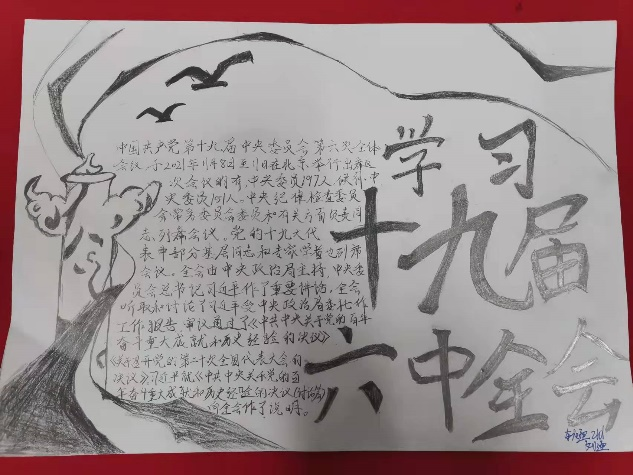 学习
十九届
六中全会
中国共产党第十九届中央委员会第六次全体
会议,于2021年11月8日至11日在北京举行出席这
次会议的有,中央委员197人,候补中
央委员151人.中央纪律检查委员
会常务委员会委员和有关方面负责同
志列席会议。党的十九大代
表中部分基层同志和专家学者也列席
会议。全会由中央政治局主持,中央委
员会总书记习近平作了重要讲话,全会
听取和讨论了习近平受中央政治局委托作
工作报告,审议通过了《中共中央关于党的百年
奋斗重大成就和历史经验的决议》
《关于召开党的第二十次全国代表大会的
决议》习近平就《中共中央关于党的百
年奋斗重大成就和历史经验的决议(讨论稿)
向全会作了说明。